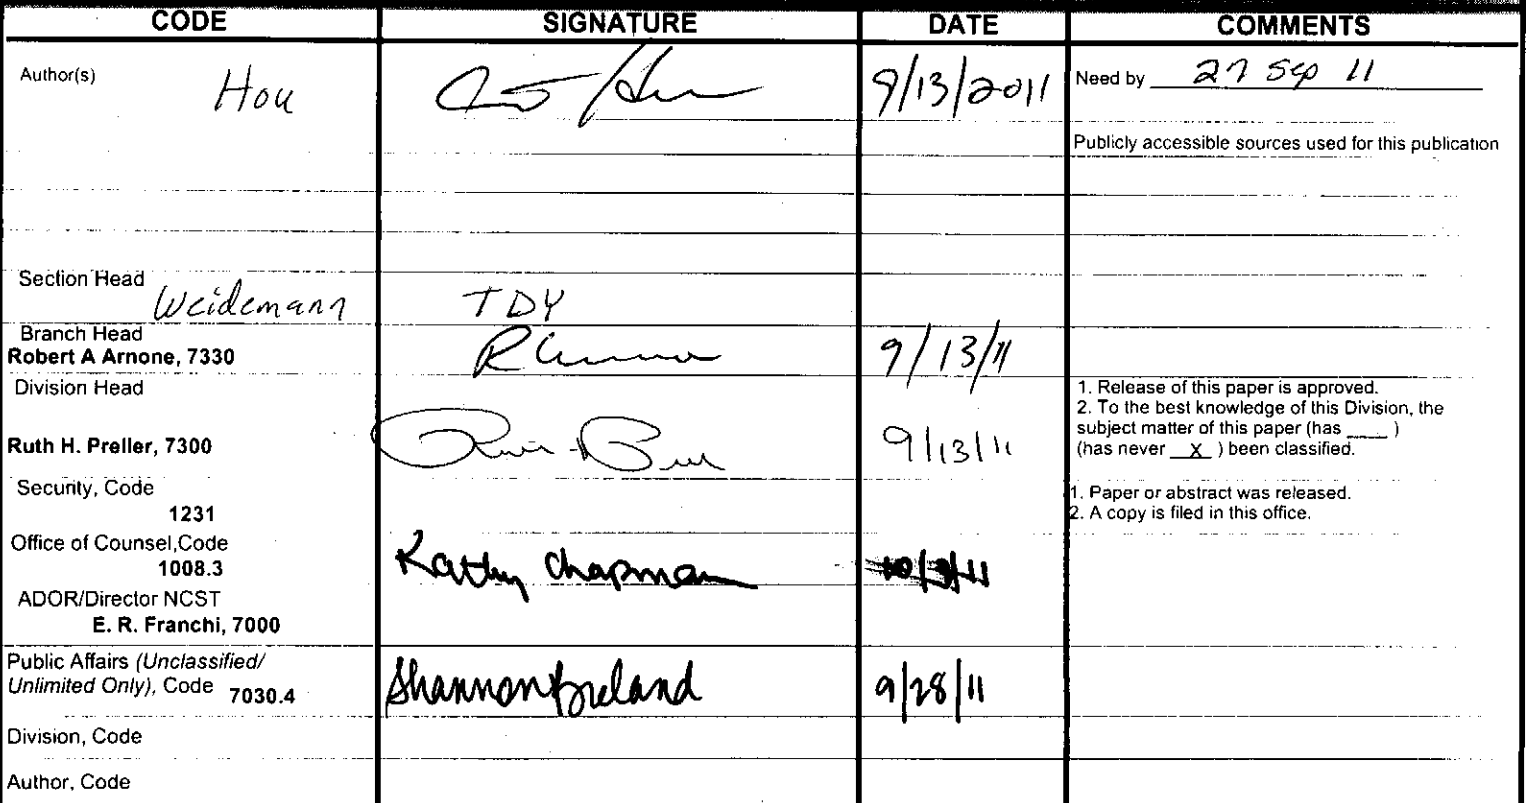 CODE SIGNATURE DATE COMMENTS
Author(s) Hou 9/13/2011 Need by 27 Sep 11
Publicly accessible sources used for this publication
Section Head Weidemann TDY
Branch Head
Robert A Arnone, 7330 9/13/11
Division Head
1. Release of this paper is approved.
2. To the best knowledge of this Division, the
subject matter of this paper (has ____ )
(has never X ) been classified.
Ruth H. Preller, 7300 9/13/11
Security, Code
1231
1. Paper or abstract was released.
2. A copy is filed in this office.
Office of Counsel,Code
1008.3 Kathy Chapman 10/3/11
ADOR/Director NCST
E. R. Franchi, 7000
Public Affairs (Unclassified/
Unlimited Only), Code 7030.4 Shannon Breland 9/28/11
Division, Code
Author, Code